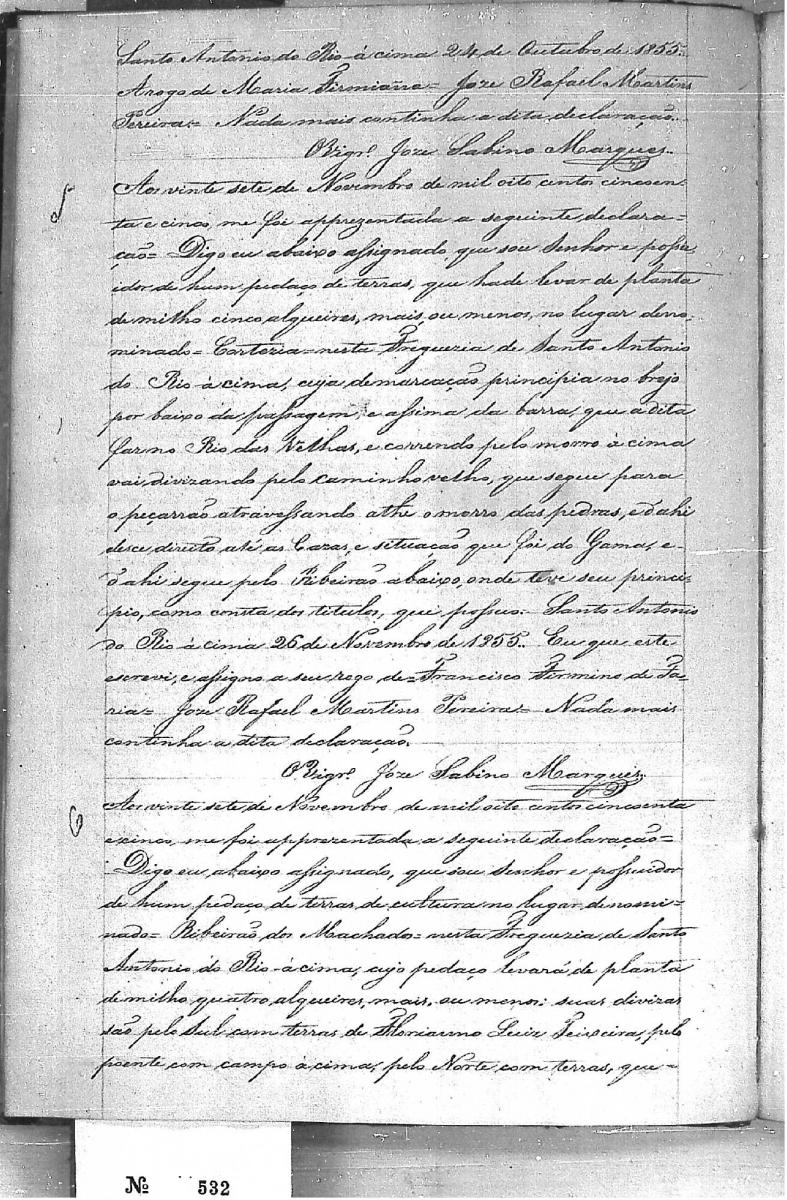 Santo Antonio do Rio à cima 24 de Outubro de 1855.
A rogo de Maria Firmiana = Joze Rafael Martins
Pereira = Nada mais continha a dita declaração.
O Vigrº. Joze Sabino Marques.
5
Aos vinte sete de Novembro de mil oito centos cincoen-
ta e cinco, me foi apprezentada a seguinte declara=
ção = Digo eu abaixo assignado que sou Senhor e possu-
idor de hum pedaço de terras, que hade levar de planta
de milho cinco alqueires, mais, ou menos, no lugar deno-
minado = Cortezia = nesta Freguezia de Santo Antonio
do Rio à cima, cuja demarcação principia no brejo
por baixo da passagem, e assima da barra, que a dita
faz no Rio das Velhas, e correndo pelo morro à cima
vai divizando pelo caminho velho, que segue para
o peçarrão atravessando athe o morro das pedras, e d'ahi
desce direito até as Cazas, e situação que foi do Gama, e-
d'ahi segue pelo Ribeirão abaixo, onde teve seu princi-
pio, como consta dos titulos, que possuo. Santo Antonio
do Rio à cima 26 de Novembro de 1855. Eu que este
escrevi, e assigno a seu rogo de = Francisco Firmino de Fa-
ria = Joze Rafael Martins Pereira = Nada mais
continha a dita declaração.
O Vigrº. Joze Sabino Marques.
6
Aos vinte sete de Novembro de mil oito centos cincoenta
e cinco, me foi apprezentada a seguinte declaração =
Digo eu, abaixo assignado, que sou Senhor e possuidor
de hum pedaço de terras de cultura no lugar denomi-
nado = Ribeirão dos Machados = nesta Freguezia de Santo
Antonio do Rio à cima, cujo pedaço levará de planta
de milho quatro alqueires, mais, ou menos: suas divizas
são pelo Sul com terras de Florianno Luiz Teixeira, pelo
poente com campo à cima, pelo Norte com terras, que =
Nº 532